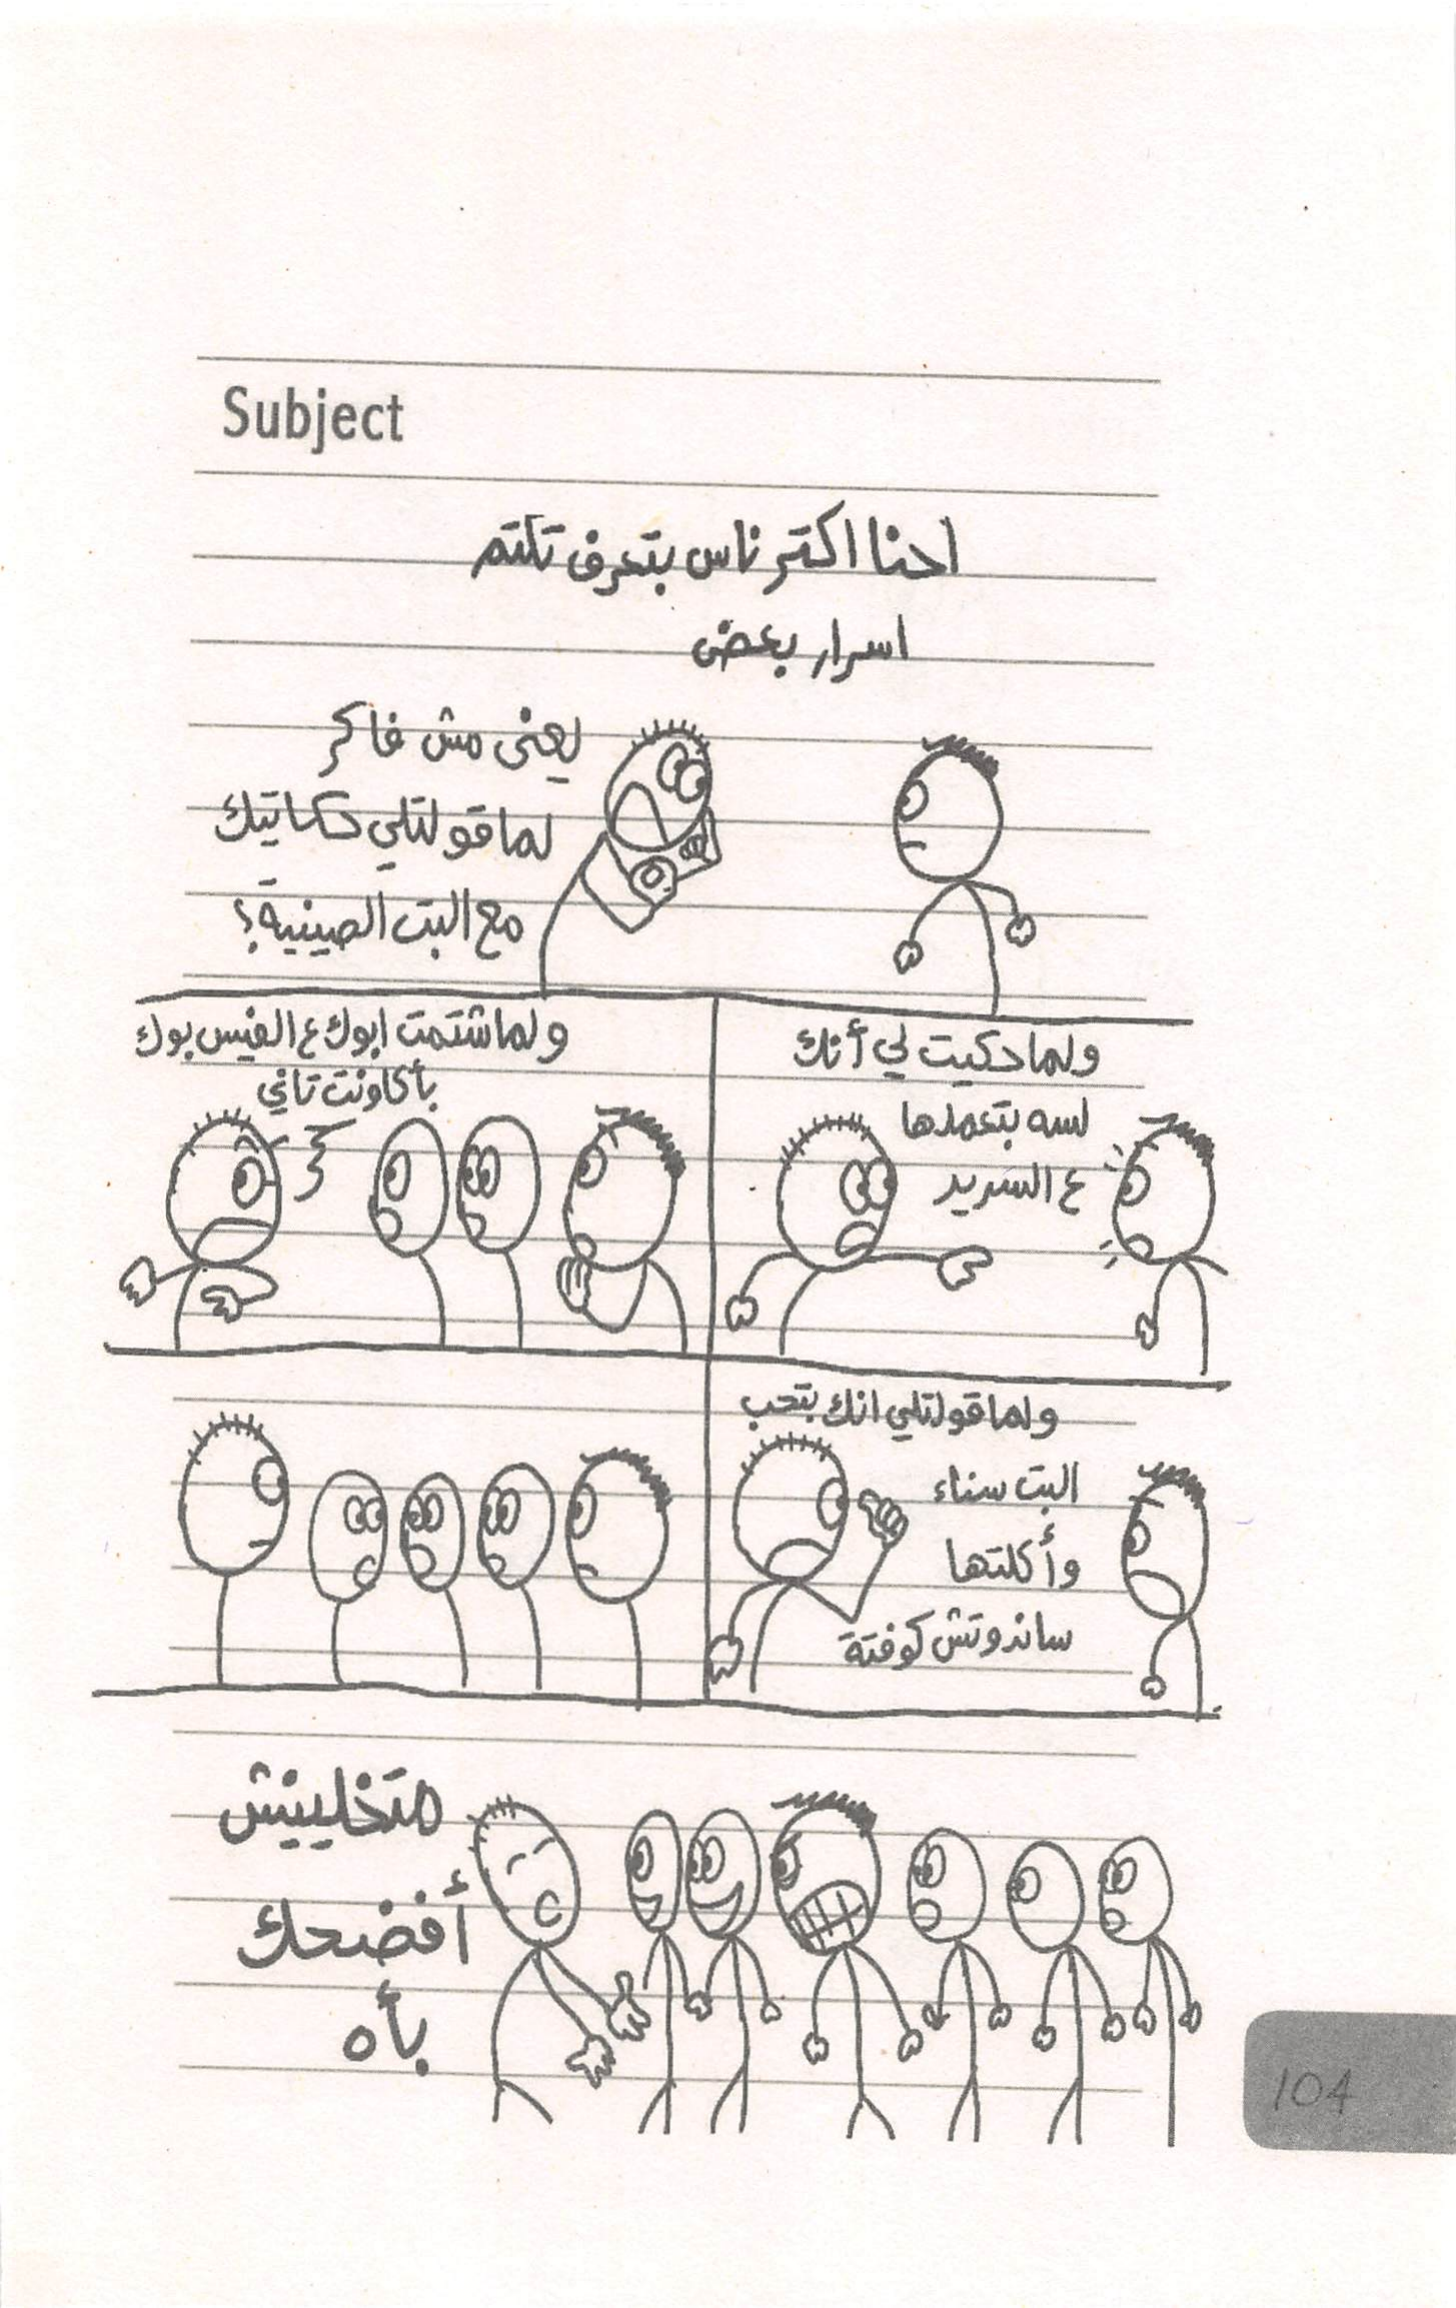 Subject
احنا اكتر ناس بتعرف تكتم
اسرار بعض
يعنى مش فاكر
لما قولتلي حكاياتك
مع البت الصينية؟
ولما حكيت لي أنك
لسه بتعملها
ع السرير
ولما شتمت ابوك ع الفيس بوك
بأكاونت تاني
ولما قولتلي انك بتحب
البت سناء
وأكلتها
ساندوتش كوفتة
متخلينيش
أفضحك
بأه
104